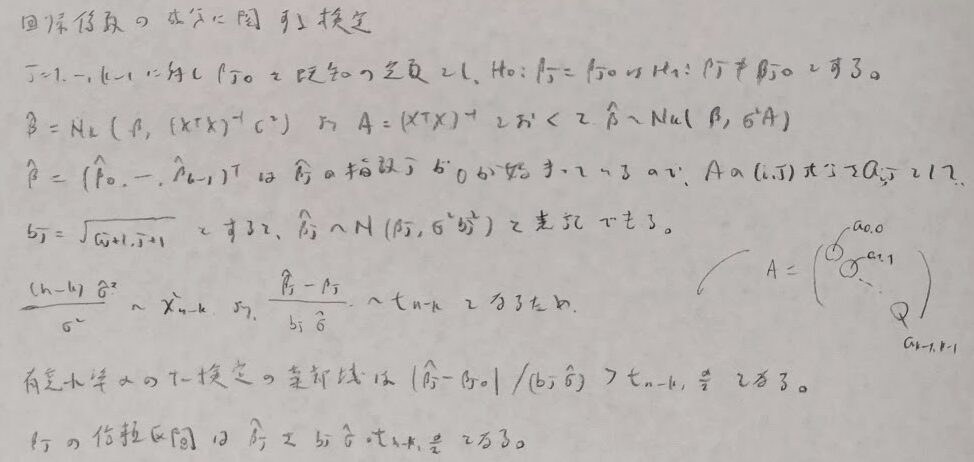 回帰係数の成分に関する検定
j=1,…,k-1 に対し βj0 を既知の定数とし、H0: βj = βj0 vs H1: βj ≠ βj0 とする。
β̂ = Nk(β, (XᵀX)⁻¹σ²) より A = (XᵀX)⁻¹ とおくと β̂ ~ Nk(β, σ²A)
β̂ = (β̂0, …, β̂k-1)ᵀ は β̂j の指数 j が0から始まっているので、Aの(i,j)成分をai,jとして、
bj = √aj+1,j+1 とすると、β̂j ~ N(βj, σ²bj²) と表記できる。
(n-k)σ̂²/σ² ~ χ²n-k より、(β̂j - βj)/(bj σ̂) ~ tn-k となるため、
A = ( a0,0 a1,1 ⋱ ak-1,k-1 )
有意水準αのT-検定の棄却域は |β̂j - βj0|/(bj σ̂) > tn-k, α/2 となる。
βj の信頼区間は β̂j ± bj σ̂・tn-k, α/2 となる。